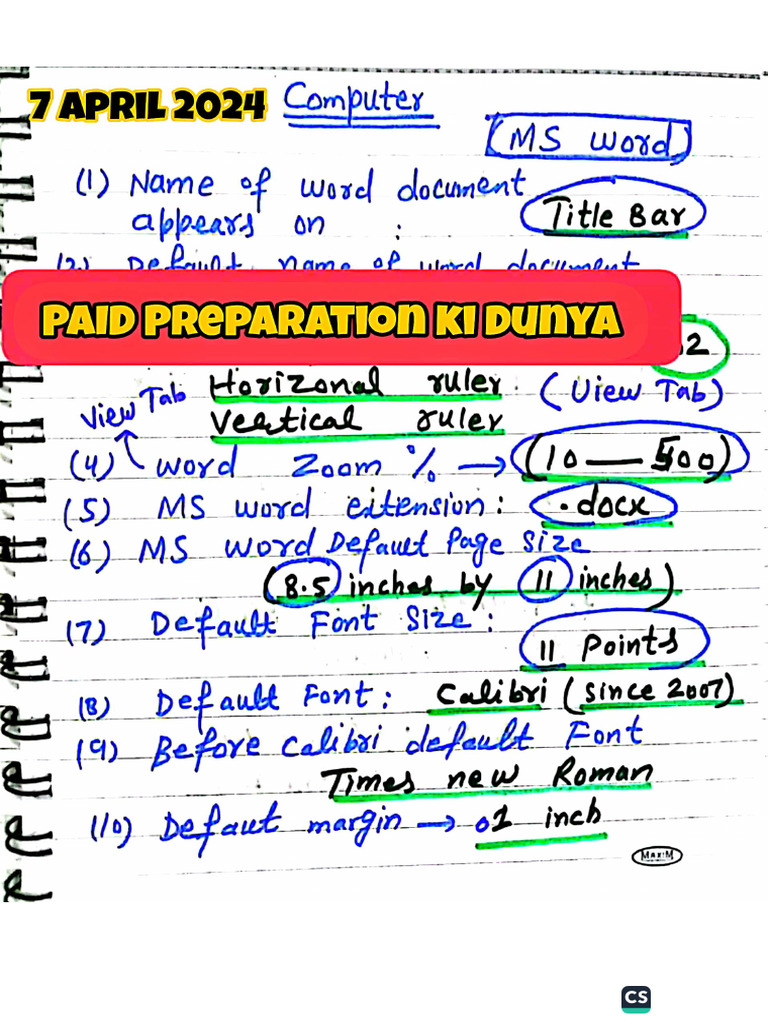 7 APRIL 2024 Computer
MS word
(1) Name of word document
appears on : Title Bar
(2) Default name of word document
PAID PREPARATION KI DUNYA
2
View Tab Horizonal ruler : (View Tab)
Vertical ruler
(4) word Zoom % → (10 — 500)
(5) MS word extension : .docx
(6) MS word Default Page Size
(8.5 inches by 11 inches)
(7) Default Font Size : 11 Points
(8) Default Font : Calibri (since 2007)
(9) Before Calibri default Font
Times new Roman
(10) Defaut margin → 01 inch
MAXIM
CS